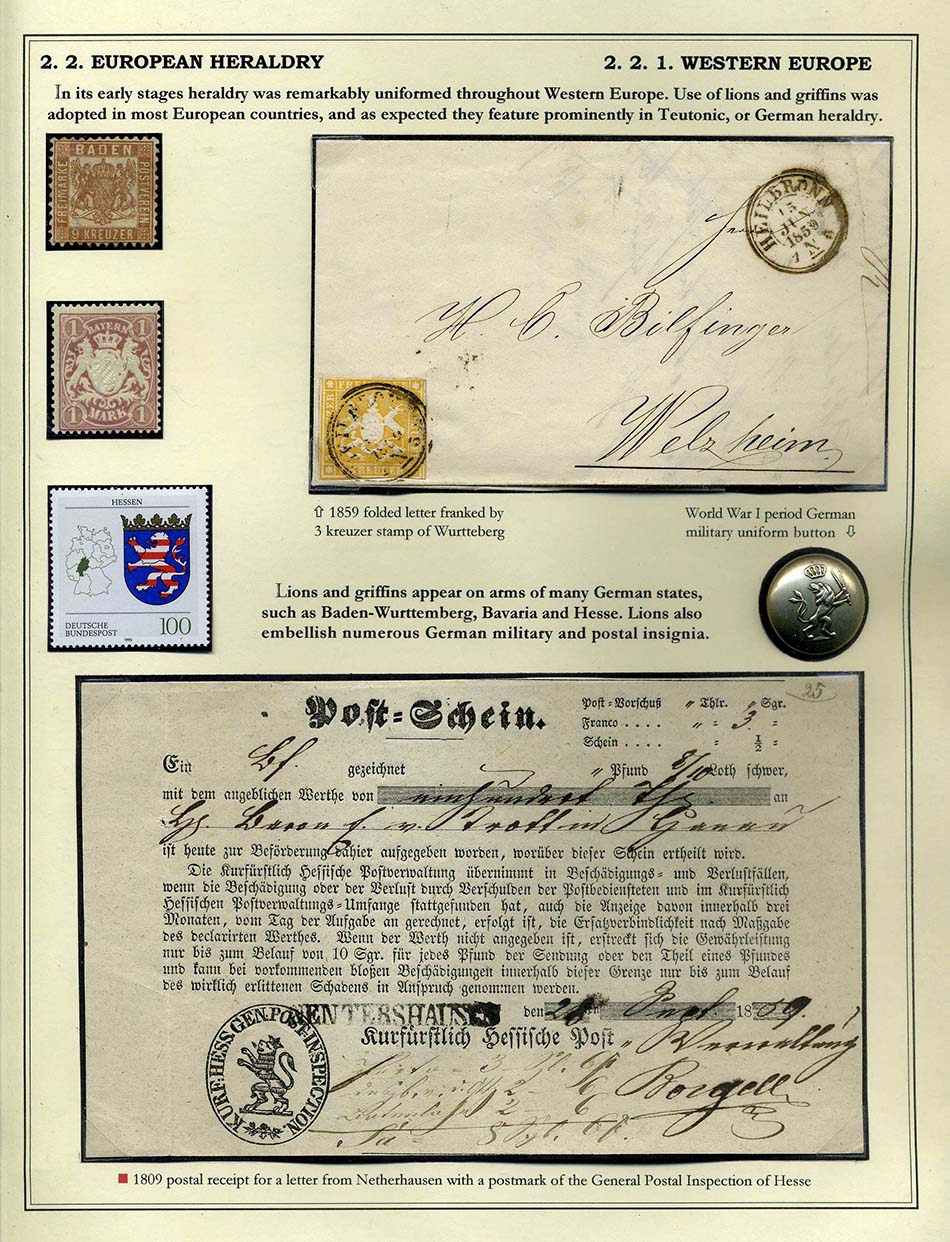 2. 2. EUROPEAN HERALDRY
2. 2. 1. WESTERN EUROPE
In its early stages heraldry was remarkably uniformed throughout Western Europe. Use of lions and griffins was
adopted in most European countries, and as expected they feature prominently in Teutonic, or German heraldry.
BADEN
FREIMARKE
POSTVEREIN
9 KREUZER
HEILBRONN
15
JUN
1859
H. C. Bilfinger
Welzheim
1 BAYERN 1
1 MARK 1
FREIMARKE
KREUZER
⇧ 1859 folded letter franked by
3 kreuzer stamp of Wurtteberg
World War I period German
military uniform button ⇩
HESSEN
DEUTSCHE
BUNDESPOST
1992
100
Lions and griffins appear on arms of many German states,
such as Baden-Wurttemberg, Bavaria and Hesse. Lions also
embellish numerous German military and postal insignia.
25
Post-Schein.
Post-Vorschuß " Thlr. " Sgr.
Franco . . . . " = 3. =
Schein . . . . = ½ =
Ein Bf. gezeichnet " Pfund 8/10 Loth schwer,
mit dem angeblichen Werthe von einhundert Th. an
Baron v. Trott in Hanau
ist heute zur Beförderung dahier aufgegeben worden, worüber dieser Schein ertheilt wird.
Die Kurfürstlich Hessische Postverwaltung übernimmt in Beschädigungs- und Verlustfällen,
wenn die Beschädigung oder der Verlust durch Verschulden der Postbediensteten und im Kurfürstlich
Hessischen Postverwaltungs-Umfange stattgefunden hat, auch die Anzeige davon innerhalb drei
Monaten, vom Tag der Aufgabe an gerechnet, erfolgt ist, die Ersatzverbindlichkeit nach Maßgabe
des declarirten Werthes. Wenn der Werth nicht angegeben ist, erstreckt sich die Gewährleistung
nur bis zum Belauf von 10 Sgr. für jedes Pfund der Sendung oder den Theil eines Pfundes
und kann bei vorkommenden bloßen Beschädigungen innerhalb dieser Grenze nur bis zum Belauf
des wirklich erlittenen Schadens in Anspruch genommen werden.
NENTERSHAUSEN den 1859.
Kurfürstlich Hessische Post-Verwaltung
KURF: HESS. GEN. POST-INSPECTION.
■ 1809 postal receipt for a letter from Netherhausen with a postmark of the General Postal Inspection of Hesse